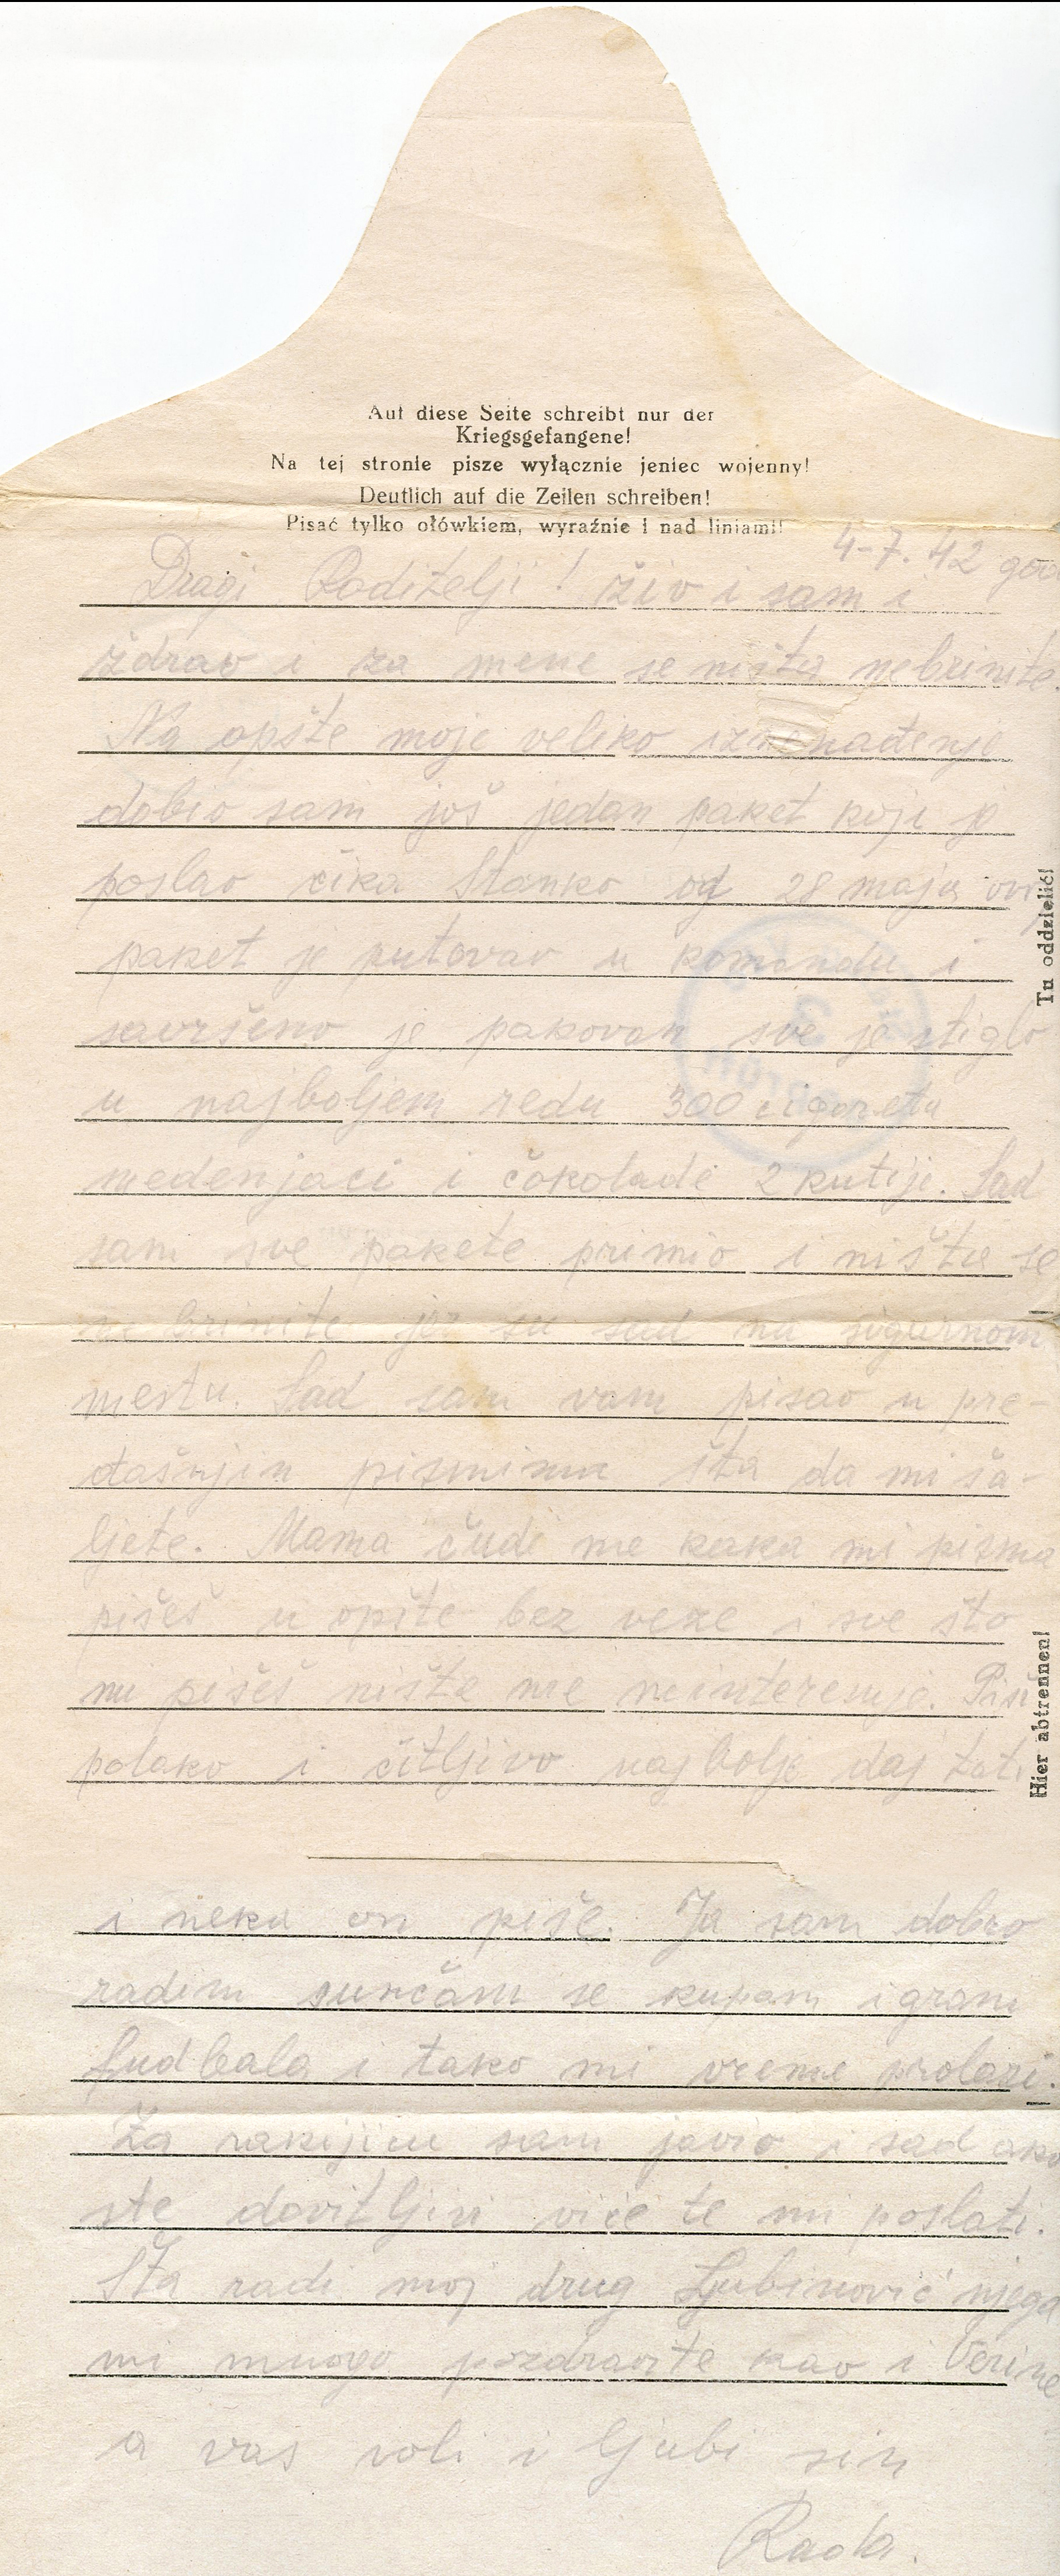 Auf diese Seite schreibt nur der
Kriegsgefangene!
Na tej stronie pisze wyłącznie jeniec wojenny!
Deutlich auf die Zeilen schreiben!
Pisać tylko ołówkiem, wyraźnie i nad liniami!
4-7. 42 god
Dragi Roditelji! živ i sam i
zdrav i za mene se ništa nebrinite.
Na opšte moje veliko iznenađenje
dobio sam još jedan paket koji je
poslao čika Stanko od 28 maja ovaj
paket je putovao u komandu i
savršeno je pakovan sve je stiglo
u najboljem redu 300 cigareta
medenjaci i čokolade 2 kutije. Sad
sam sve pakete primio i ništa se
ne brinite jer su sad na sigurnom
mestu. Sad sam vam pisao u pre-
đašnjin pismima šta da mi ša-
ljete. Mama čudi me kaka mi pisma
pišeš u opšte bez veze i sve što
mi pišeš ništa me neinteresuje. Piši
polako i čitljivo najbolje daj tati
i neka on piše. Ja sam dobro
radim sunčam se kupam igram
fudbala i tako mi vreme prolazi.
Za rakijicu sam javio i sad ako
ste dovitljivi viče te mi poslati.
Šta radi moj drug Ljubinović njega
mi mnogo pozdravite kao i Verine
a vas voli i ljubi sin
Rada.
Tu oddzielić!
Hier abtrennen!